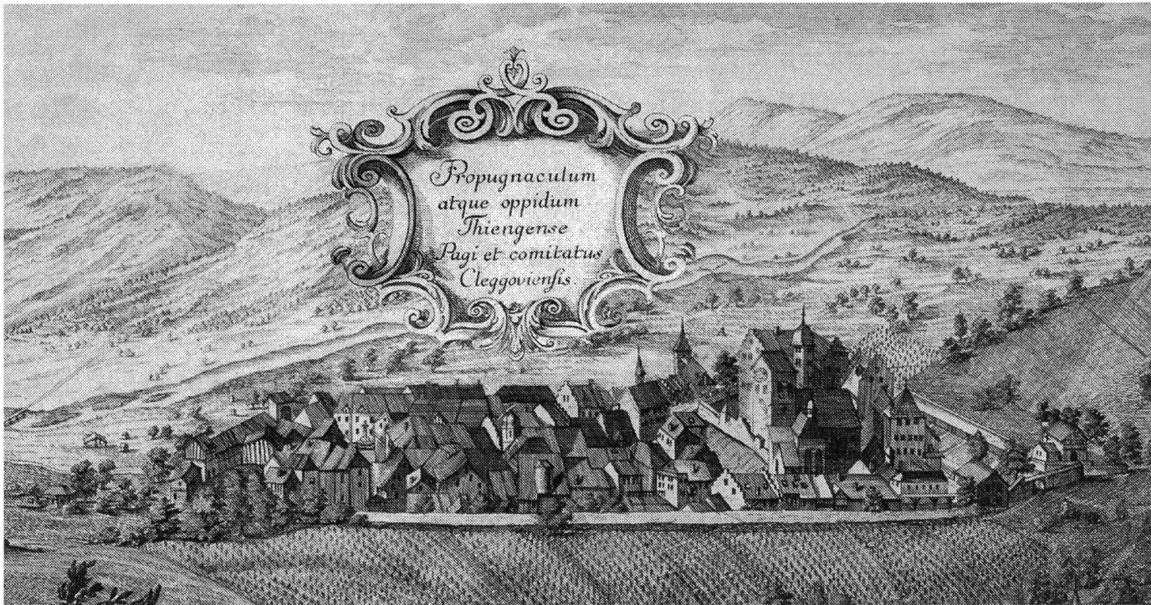 Propugnaculum
atque oppidum
Thiengense
Pagi et comitatus
Cleggoviensis.